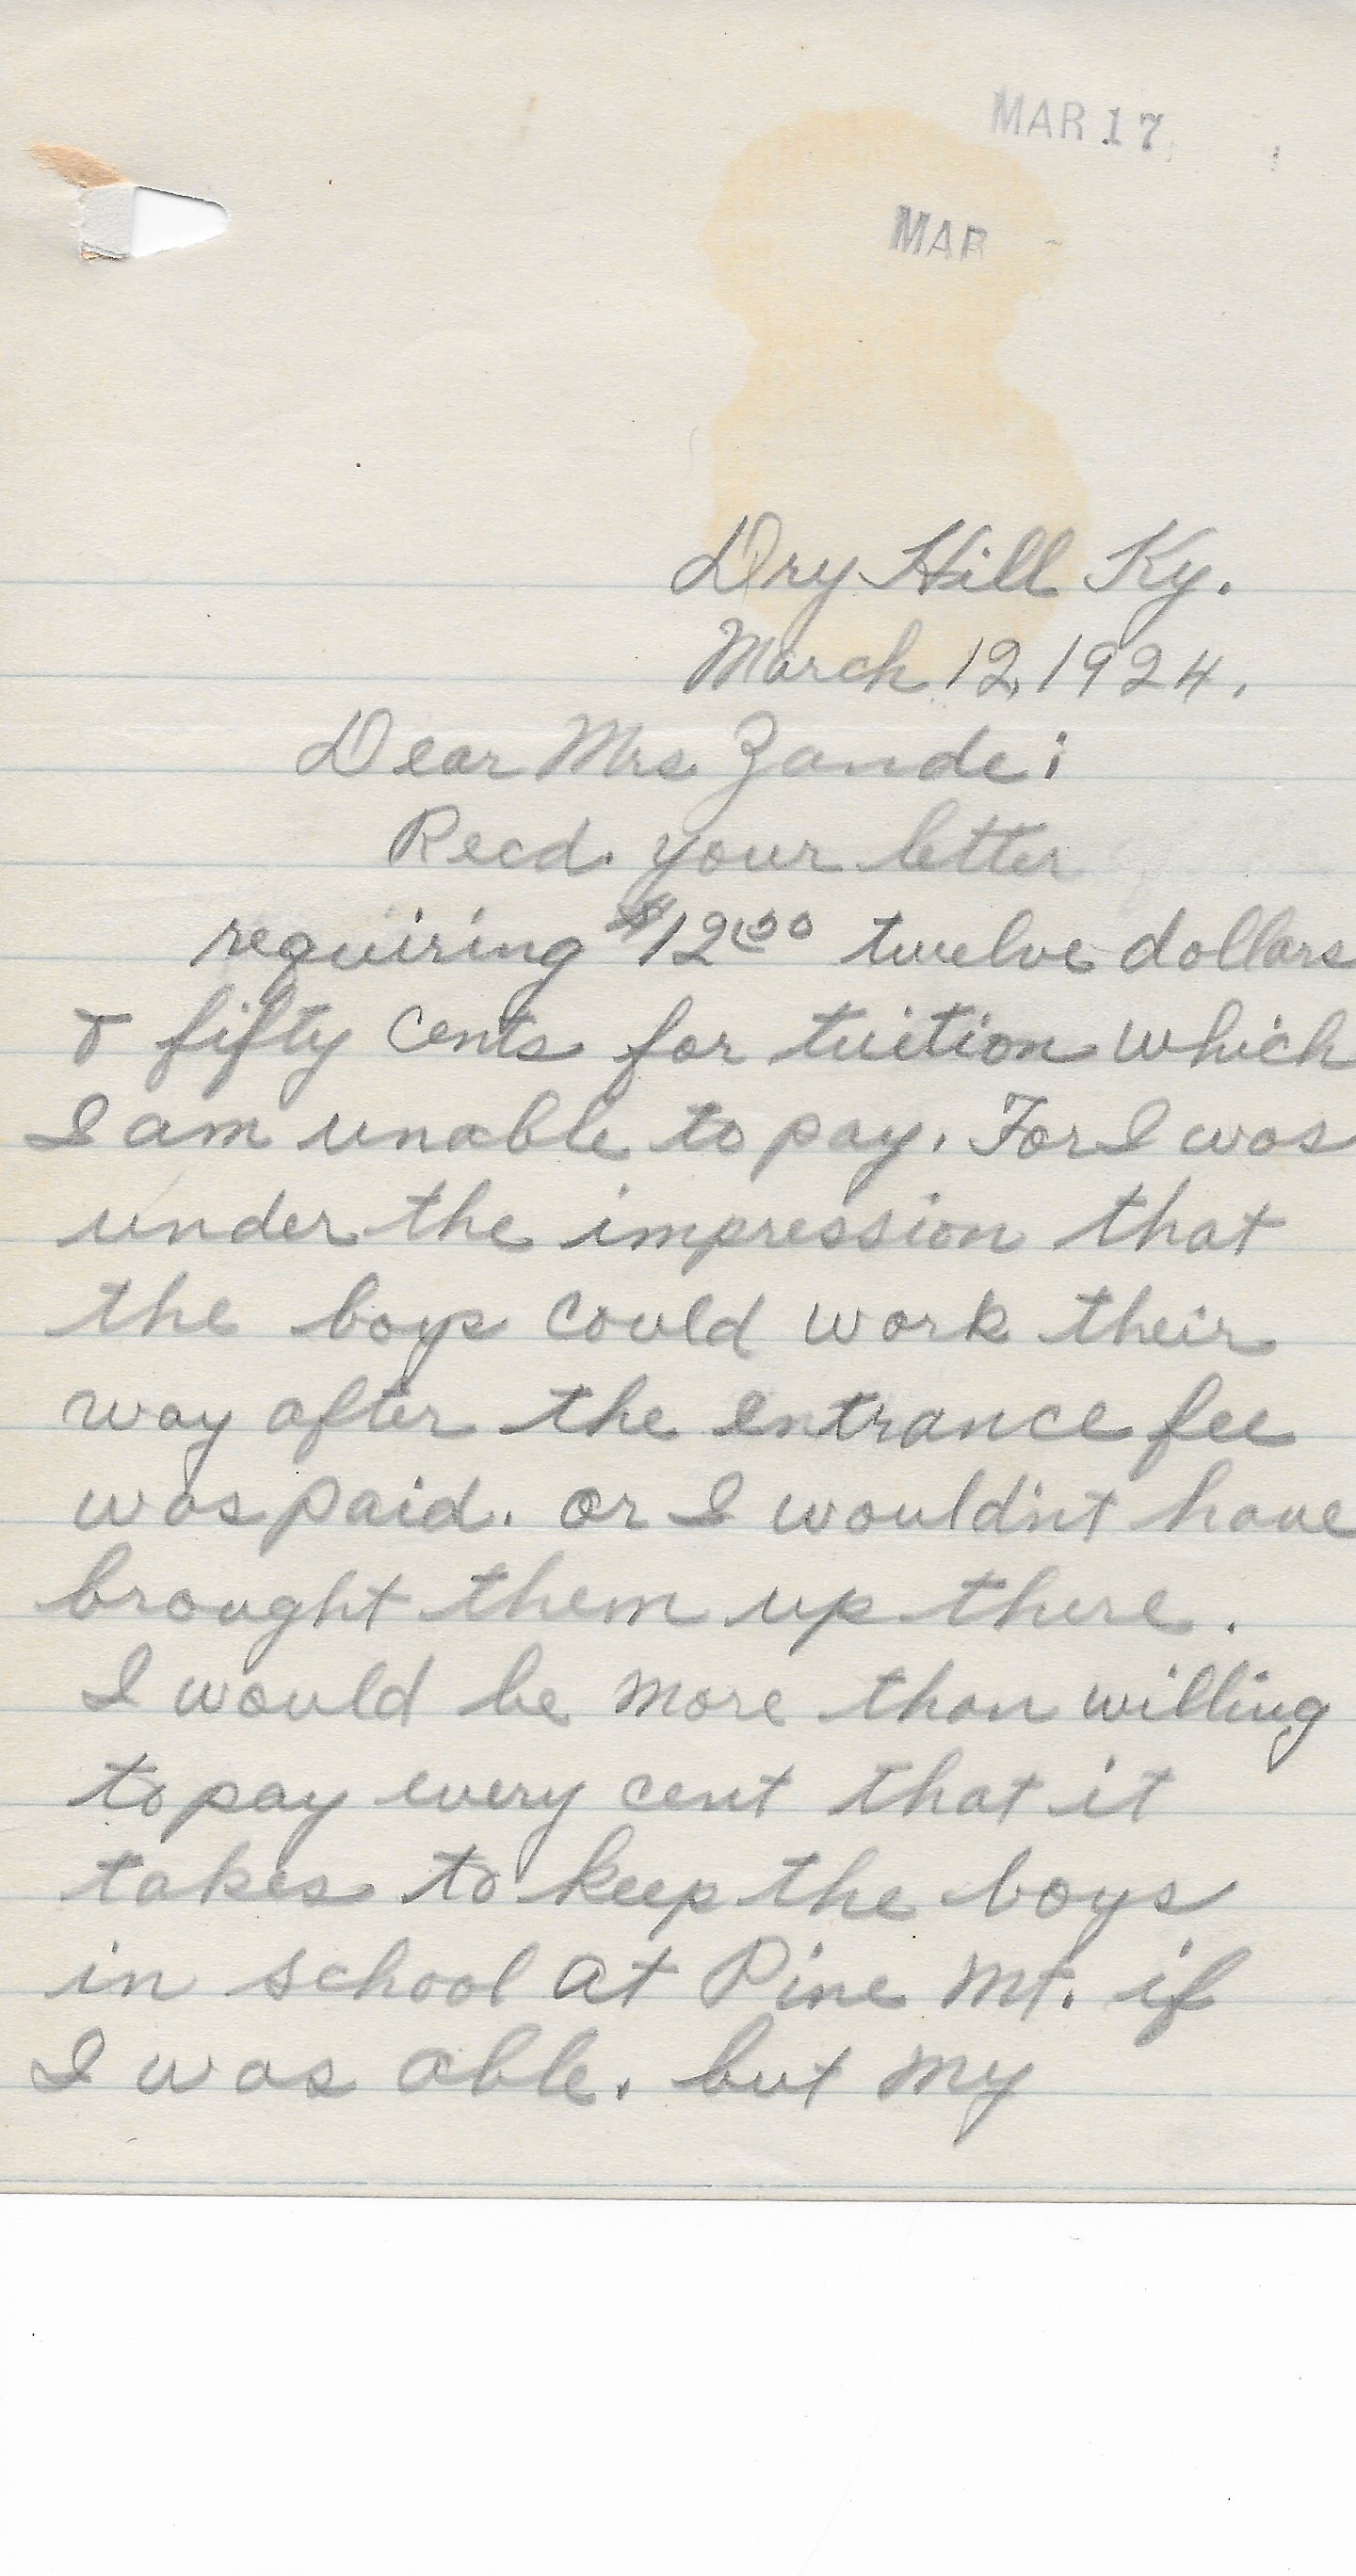 MAR 17
MAR
Dry Hill Ky.
March 12, 1924.
Dear Mrs Zande:
Recd. your letter
requiring $12.50 twelve dollars
& fifty cents for tuition which
I am unable to pay. For I was
under the impression that
the boys could work their
way after the entrance fee
was paid. or I wouldn't have
brought them up there.
I would be more than willing
to pay every cent that it
takes to keep the boys
in school at Pine Mt. if
I was able. but my